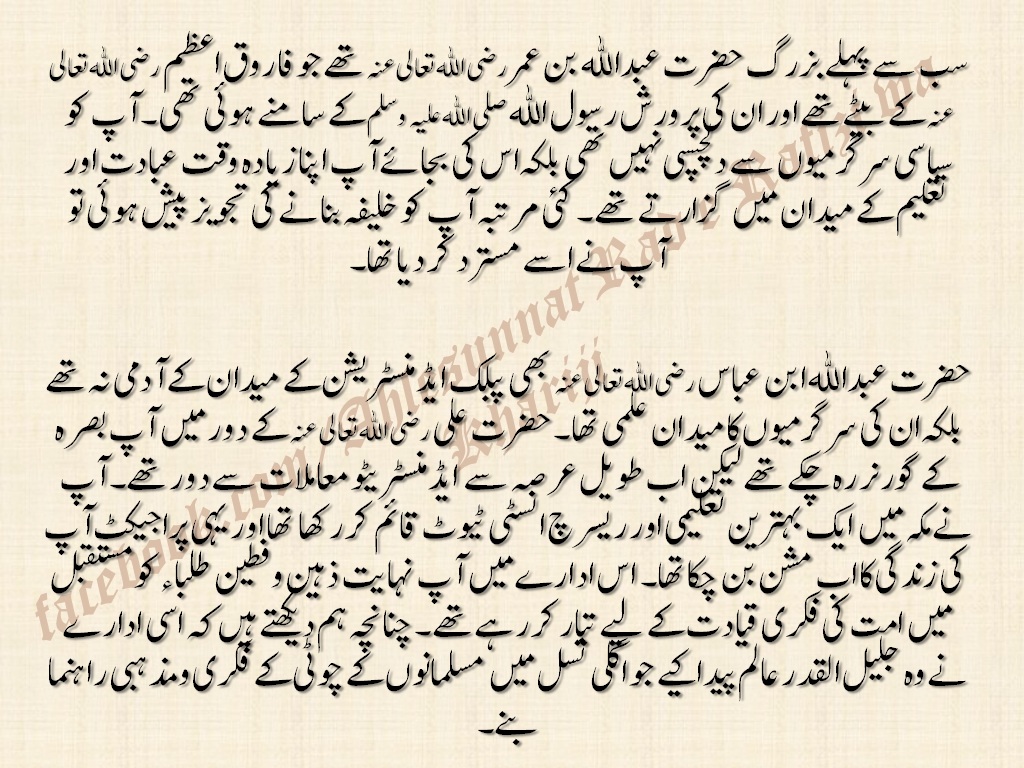 سب سے پہلے بزرگ حضرت عبداللہ بن عمر رضی اللہ تعالی عنہ تھے جو فاروق اعظم رضی اللہ تعالی
عنہ کے بیٹے تھے اور ان کی پرورش رسول اللہ صلی اللہ علیہ وسلم کے سامنے ہوئی تھی۔ آپ کو
سیاسی سرگرمیوں سے دلچسپی نہیں تھی بلکہ اس کی بجائے آپ اپنا زیادہ وقت عبادت اور
تعلیم کے میدان میں گزارتے تھے۔ کئی مرتبہ آپ کو خلیفہ بنانے کی تجویز پیش ہوئی تو
آپ نے اسے مسترد کر دیا تھا۔
حضرت عبداللہ ابن عباس رضی اللہ تعالی عنہ بھی پبلک ایڈمنسٹریشن کے میدان کے آدمی نہ تھے
بلکہ ان کی سرگرمیوں کا میدان علمی تھا۔ حضرت علی رضی اللہ تعالی عنہ کے دور میں آپ بصرہ
کے گورنر رہ چکے تھے لیکن اب طویل عرصہ سے ایڈمنسٹریٹو معاملات سے دور تھے۔ آپ
نے مکہ میں ایک بہترین تعلیمی اور ریسرچ انسٹی ٹیوٹ قائم کر رکھا تھا اور یہی پراجیکٹ آپ
کی زندگی کا اب مشن بن چکا تھا۔ اس ادارے میں آپ نہایت ذہین و فطین طلباء کو مستقبل
میں امت کی فکری قیادت کے لیے تیار کر رہے تھے۔ چنانچہ ہم دیکھتے ہیں کہ اسی ادارے
نے وہ جلیل القدر عالم پیدا کیے جو اگلی نسل میں مسلمانوں کے چوٹی کے فکری و مذہبی راہنما
بنے۔
facebook.com/Ahlesunnat Rad e Rafizi wa
Khariji